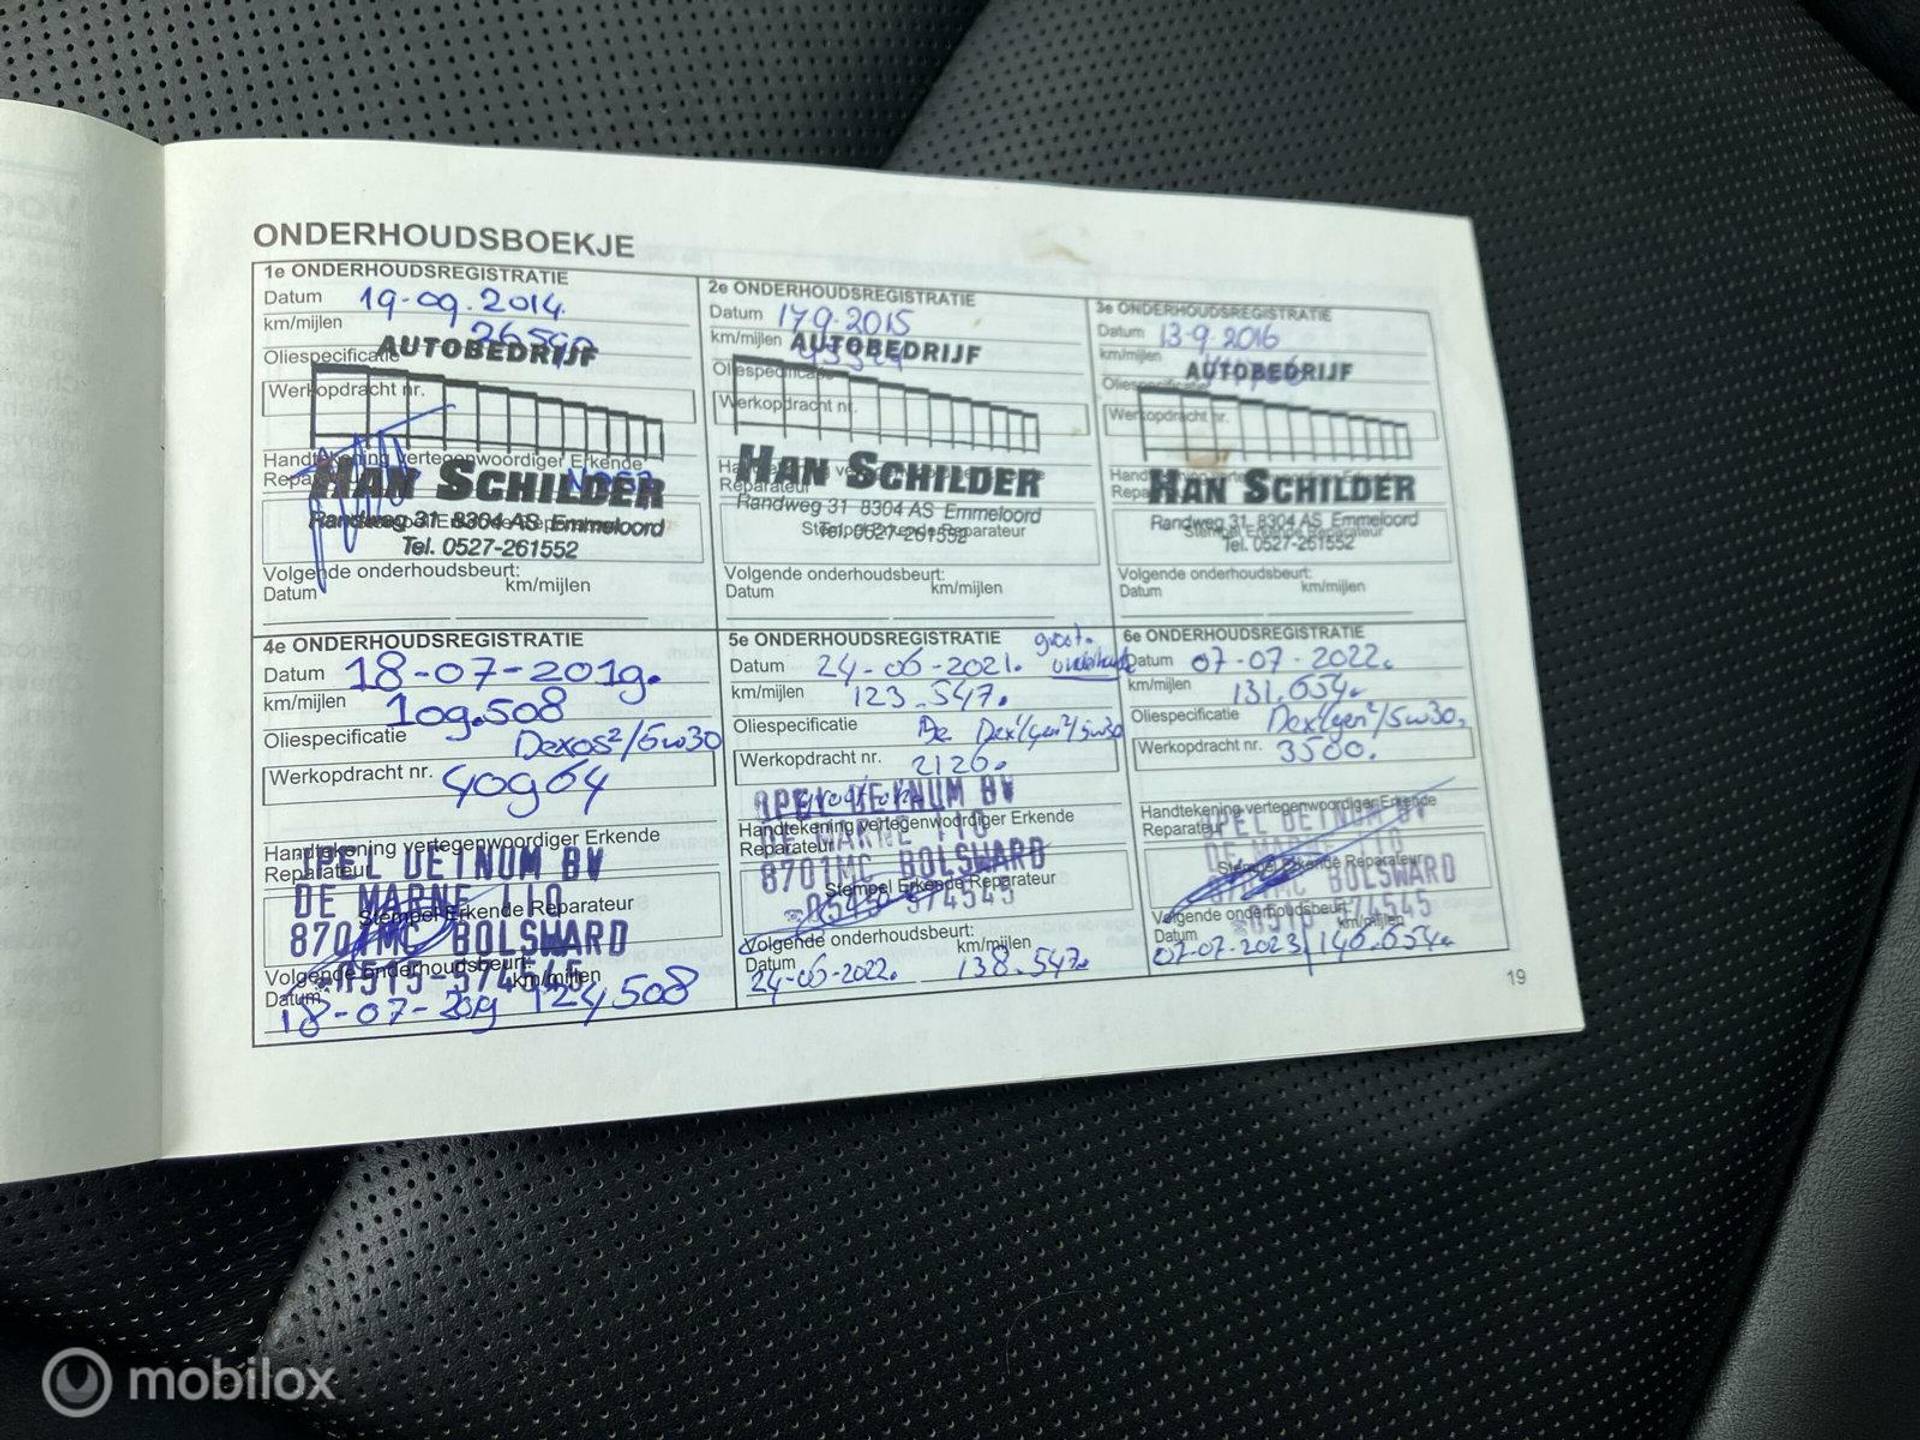 ONDERHOUDSBOEKJE
1e ONDERHOUDSREGISTRATIE
Datum 19-09.2014.
km/mijlen
Oliespecificatie
AUTOBEDRIJF
Werkopdracht nr.
Handtekening vertegenwoordiger Erkende
Reparateur
HAN SCHILDER
Randweg 31 8304 AS Emmeloord
Tel. 0527-261552
Volgende onderhoudsbeurt:
Datum km/mijlen
2e ONDERHOUDSREGISTRATIE
Datum 17 9.2015
km/mijlen
AUTOBEDRIJF
Oliespecificatie
Werkopdracht nr.
HAN SCHILDER
Reparateur
Randweg 31 8304 AS Emmeloord
Stempel Erkende Reparateur
Tel. 0527-261552
Volgende onderhoudsbeurt:
Datum km/mijlen
3e ONDERHOUDSREGISTRATIE
Datum 13-9.2016
km/mijlen
AUTOBEDRIJF
Oliespecificatie
Werkopdracht nr.
HAN SCHILDER
Randweg 31 8304 AS Emmeloord
Stempel Erkende Reparateur
Tel. 0527-261552
Volgende onderhoudsbeurt:
Datum km/mijlen
4e ONDERHOUDSREGISTRATIE
Datum 18-07-2019.
km/mijlen 109.508
Oliespecificatie Dexos²/5w30
Werkopdracht nr. 40964
Handtekening vertegenwoordiger Erkende
Reparateur
OPEL DEINUM BV
DE MARNE 110
Stempel Erkende Reparateur
8701MC BOLSWARD
Volgende onderhoudsbeurt:
0515-574545
km/mijlen
Datum
18-07-2019 124508
5e ONDERHOUDSREGISTRATIE groot.
Datum 24-06-2021.
km/mijlen 123.547.
Oliespecificatie
Werkopdracht nr. 2126.
OPEL DEINUM BV
Handtekening vertegenwoordiger Erkende
DE MARNE 110
Reparateur
8701MC BOLSWARD
Stempel Erkende Reparateur
0515-574545
Volgende onderhoudsbeurt:
Datum km/mijlen
24-06-2022. 138.547.
6e ONDERHOUDSREGISTRATIE
Datum 07-07-2022.
km/mijlen 131.654.
Oliespecificatie
Werkopdracht nr. 3500.
Handtekening vertegenwoordiger Erkende
Reparateur
OPEL DEINUM BV
DE MARNE 110
Stempel Erkende Reparateur
8701MC BOLSWARD
0515-574545
Volgende onderhoudsbeurt:
Datum km/mijlen
07-07-2023 146.654.
19
mobilox